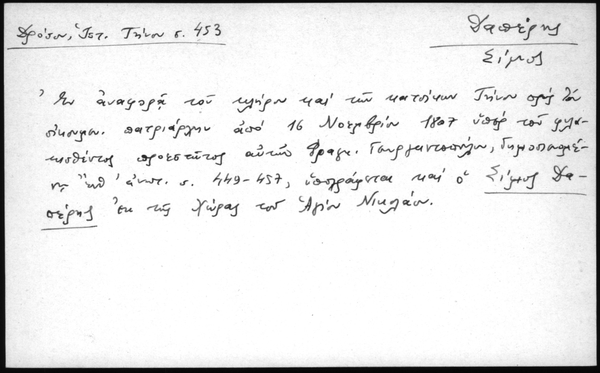 Δρόσου, Ἱστ. Τήνου σ. 453
Δαπέρης
Σίμος
Ἐν ἀναφορᾷ τοῦ κλήρου καὶ τῶν κατοίκων Τήνου πρὸς τὸν
οἰκουμ. πατριάρχην ἀπὸ 16 Νοεμβρίου 1807 ὑπὲρ τοῦ φυλα-
κισθέντος προεστῶτος αὐτῶν Φραγκ. Γεωργαντοπούλου, δημοσιευμέ-
νῃ ἔνθ' ἀνωτ. σ. 449-457, ὑπογράφεται καὶ ὁ Σίμος Δα-
πέρης ἐκ τῆς Χώρας τοῦ Ἁγίου Νικολάου.